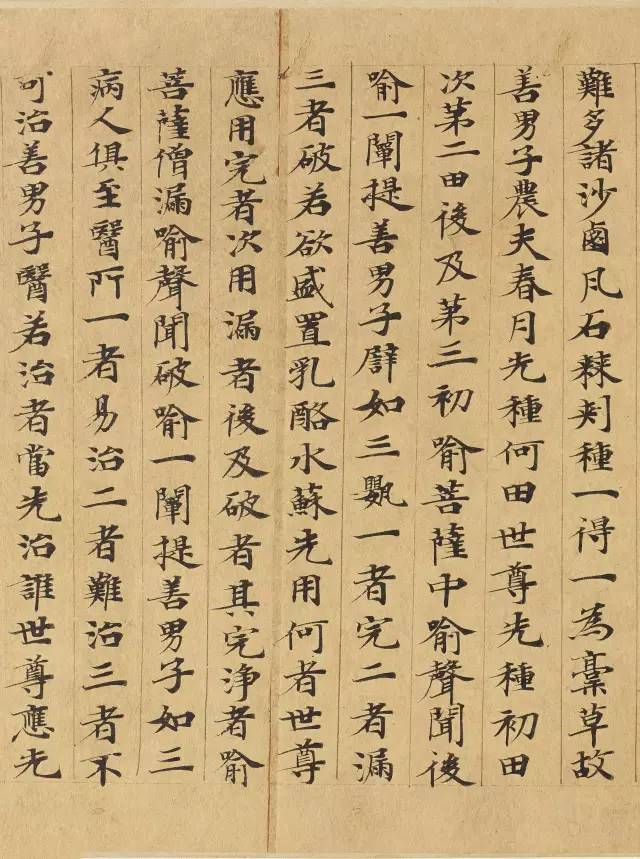 難多諸沙鹵凡石棘刾種一得一為藁草故
善男子農夫春月先種何田世尊先種初田
次第二田後及第三初喻菩薩中喻聲聞後
喻一闡提善男子譬如三甖一者完二者漏
三者破若欲盛置乳酪水蘇先用何者世尊
應用完者次用漏者後及破者其完淨者喻
菩薩僧漏喻聲聞破喻一闡提善男子如三
病人俱至醫所一者易治二者難治三者不
可治善男子醫若治者當先治誰世尊應先